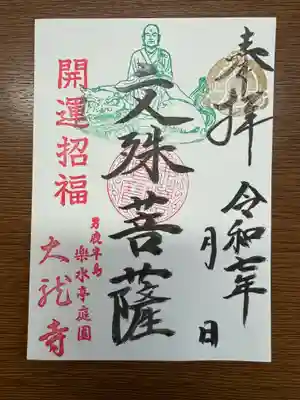 奉拝
令和七年
月 日
文殊菩薩
開運招福
男鹿半島
楽水亭庭園
大龍寺